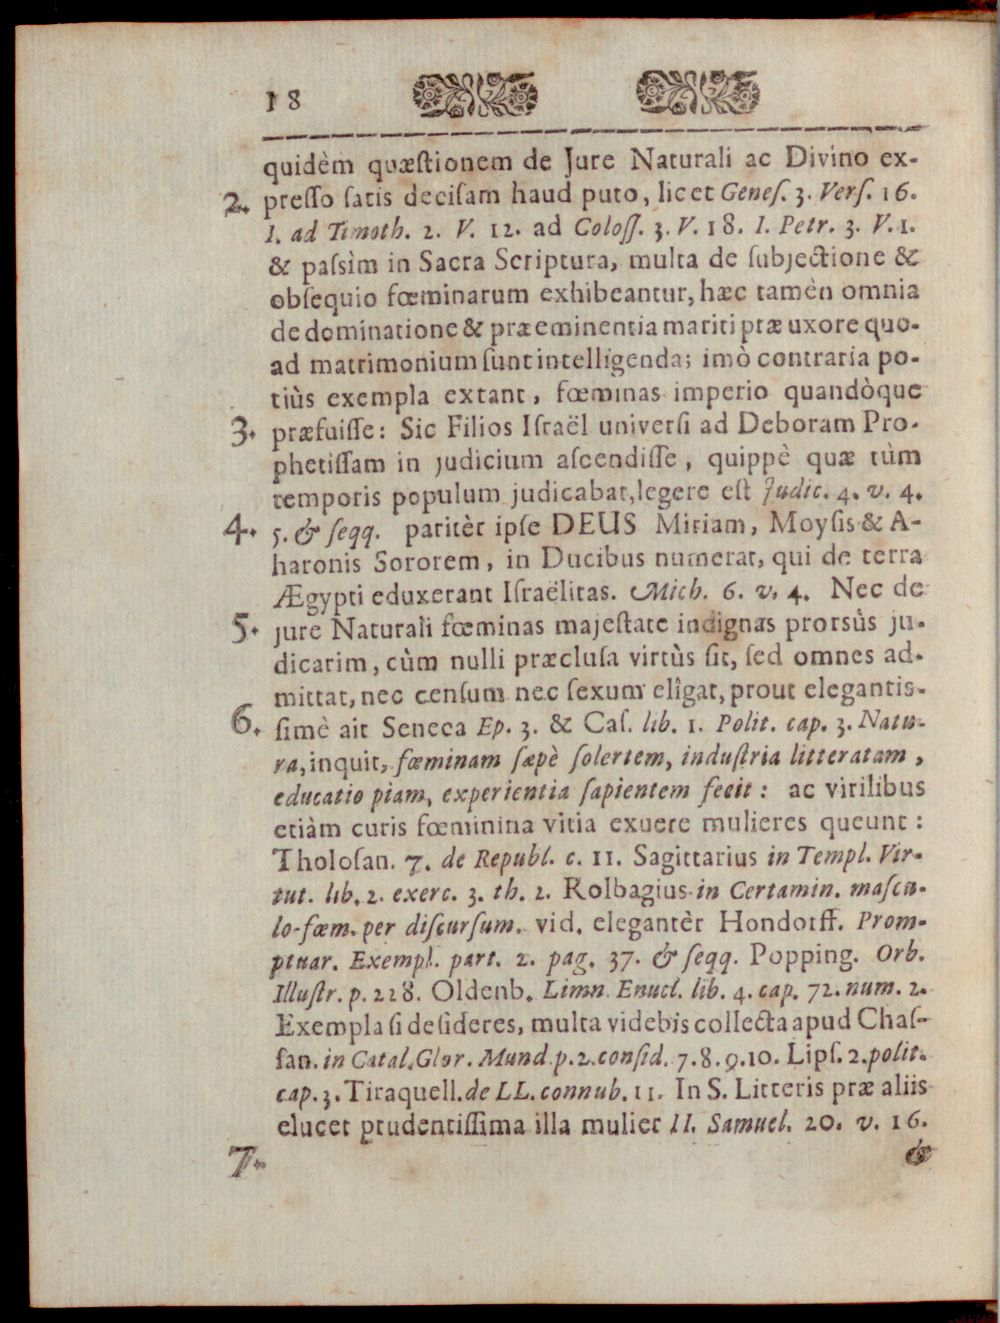 18
quidèm quæstionem de Jure Naturali ac Divino ex-
2. presso satis decisam haud puto, licet Genes. 3. Vers. 16.
1. ad Timoth. 2. V. 12. ad Coloss. 3. V. 18. 1. Petr. 3. V. 1.
& passìm in Sacra Scriptura, multa de subjectione &
obsequio fœminarum exhibeantur, hæc tamèn omnia
de dominatione & præeminentia mariti præ uxore quo-
ad matrimonium sunt intelligenda; imò contraria po-
tiùs exempla extant, fœminas imperio quandòque
3. præfuisse: Sic Filios Israël universi ad Deboram Pro-
phetissam in judicium ascendisse, quippè quæ tùm
temporis populum judicabat, legere est Judic. 4. v. 4.
4. 5. & seqq. paritèr ipse DEUS Miriam, Moysis & A-
haronis Sororem, in Ducibus numerat, qui de terra
Ægypti eduxerant Israëlitas. Mich. 6. v. 4. Nec de
5. jure Naturali fœminas majestate indignas prorsùs ju-
dicarim, cùm nulli præclusa virtùs sit, sed omnes ad-
mittat, nec censum nec sexum elîgat, prout elegantis-
6. simè ait Seneca Ep. 3. & Cas. lib. 1. Polit. cap. 3. Natu-
ra, inquit, fœminam sæpè solertem, industria litteratam,
educatio piam, experientia sapientem fecit: ac virilibus
etiàm curis fœminina vitia exuere mulieres queunt:
Tholosan. 7. de Republ. c. 11. Sagittarius in Templ. Vir-
tut. lib. 2. exerc. 3. th. 2. Rolbagius in Certamin. mascu-
lo-fœm. per discursum. vid. elegantèr Hondorff. Prom-
ptuar. Exempl. part. 2. pag. 37. & seqq. Popping. Orb.
Illustr. p. 228. Oldenb. Limn. Enucl. lib. 4. cap. 72. num. 2.
Exempla si desideres, multa videbis collecta apud Chas-
san. in Catal. Glor. Mund. p. 2. consid. 7. 8. 9. 10. Lips. 2. polit.
cap. 3. Tiraquell. de LL. connub. 11. In S. Litteris præ aliis
elucet prudentissima illa mulier II. Samuel. 20. v. 16.
7. &